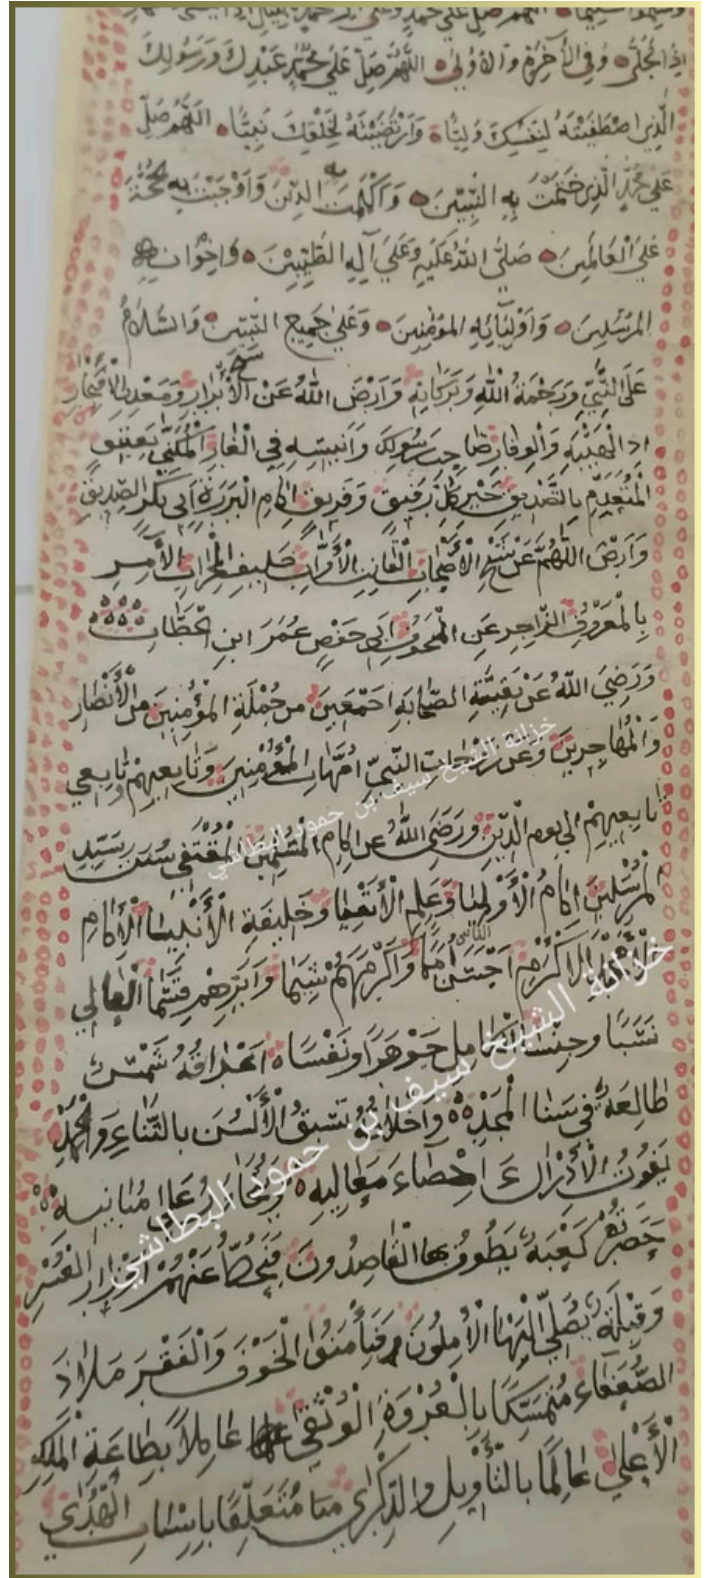 وسلموا تسليما اللهم صل على محمد وعلى آل محمد
إذا تجلى وفي الآخرة والأولى اللهم صل على محمد عبدك ورسولك
الذي اصطفيته لنفسك وليا وارتضيته لخلقك نبيا اللهم صل
على محمد الذي ختمت به النبيين وأكملت به الدين وأوجبت به الحجة
على العالمين صلى الله عليه وعلى آله الطيبين وإخوانه
المرسلين وأوليائه المؤمنين وعلى جميع النبيين والسلام
على النبي ورحمة الله وبركاته وارض الله عن الأبرار ومعدن الافتخار
الهيبة والوقار صاحب رسولك وأنيسه في الغار المكنى بعتيق
المتقدم بالتصديق خير كل رفيق وفريق إمام البررة أبي بكر الصديق
وارض اللهم عن شيخ الأصحاب القانت الأواب حليف المحراب الآمر
بالمعروف الزاجر عن أبي حفص عمر ابن الخطاب
ورضي الله عن بقية الصحابة أجمعين من جملة المؤمنين من الأنصار
والمهاجرين وعن زوجات النبي أمهات المؤمنين وتابعيهم وتابعي
تابعيهم إلى يوم الدين ورضي الله عن إمام المسلمين المقتفي سنن سيد
المرسلين إمام الأوليا وعلم الأتقيا وخليفة الأنبيا الإمام
وأكرمهم شيما العالي
نسبا وجنسا الكامل جوهرا ونفسا أعراقه شمس
طالعة في سنا المجد وأخلاقه تسبق الألسن بالثناء والحمد
يفوت الأدراك احصاء معاليه
حضرته كعبة يطوف بها القاصدون فيحط عنهم
وقبلة يصلي إليها الآملون فيأمنوا الخوف والفقر ملاذ
الضعفاء متمسكا بالعروة الوثقى عاملا بطاعة الملك
الأعلى عالما بالتأويل والذكرى متعلقا الهدى
خزانة الشيخ سيف بن حمود البطاشي
خزانة الشيخ سيف بن حمود البطاشي